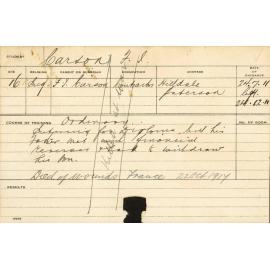 STUDENT Carson F. S.
AGE RELIGION PARENT OR GUARDIAN OCCUPATION ADDRESS DATE OF ENTRANCE
16 F. S. Carson Contractor Hilldale 24.7.11
Paterson Left
COURSE OF TRAINING Ordinary NO. OF ROOM
Intending for Diploma but his
father met with financial
Reverses & had to withdraw
his son.
Died of wounds France 22 Oct 1917
RESULTS